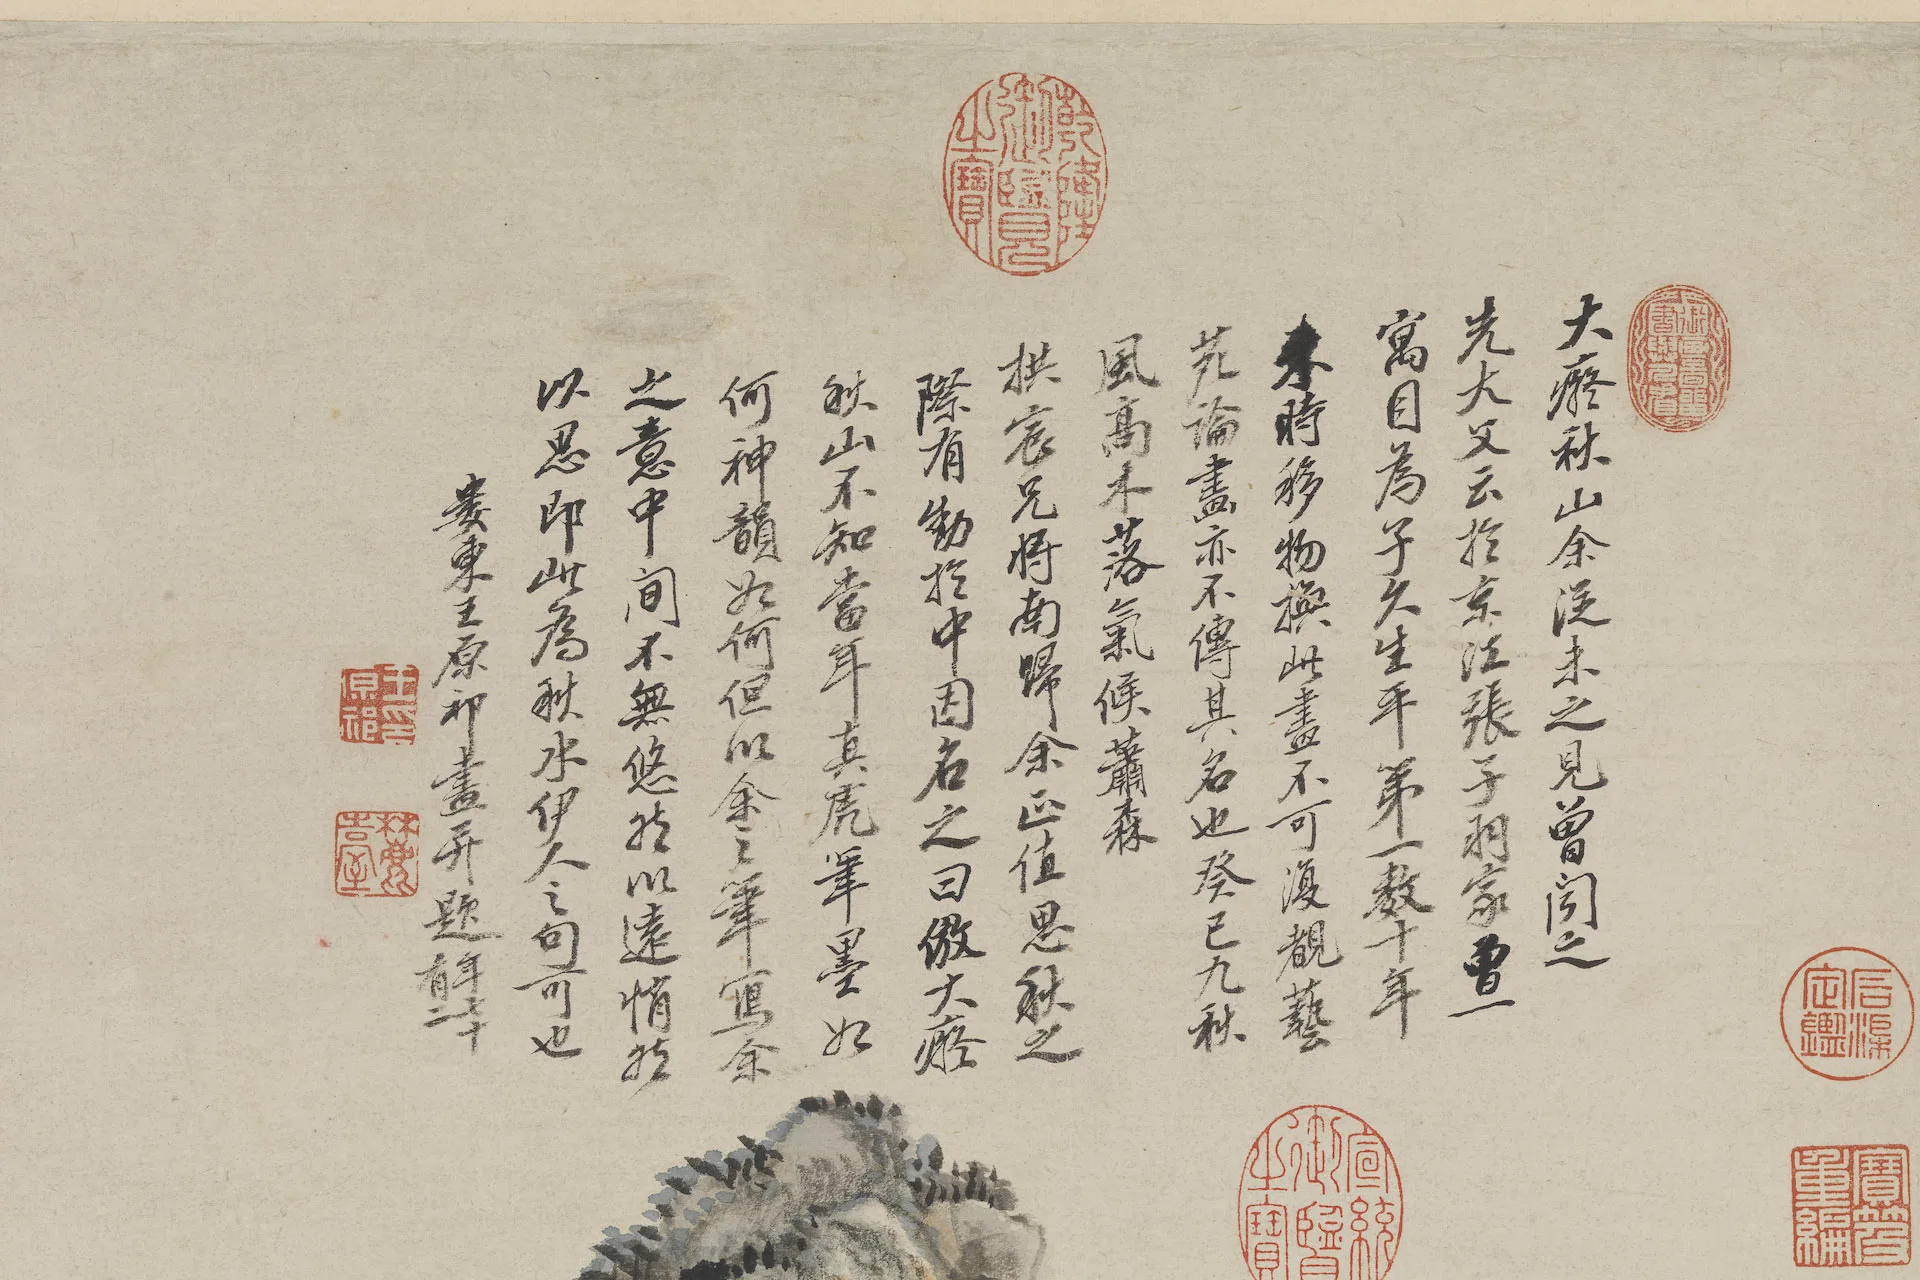 大癡秋山余從未之見曾聞之
先大父云於京江張子羽家曾一
寓目為子久生平第一數十年
來時移物換此畫不可復覩藝
苑論畫亦不傳其名也癸巳九秋
風高木落氣候蕭森
拱宸兄將南歸余正值思秋之
際有動於中因名之曰倣大癡
秋山不知當年真虎筆墨如
何神韻如何但以余之筆寫余
之意中間不無悠然以遠悄然
以思即此為秋水伊人之句可也
婁東王原祁畫并題年七十有二
乾隆御覽之寶
宣統御覽之寶
石渠定鑑
寶笈重編
王原祁印
麓臺